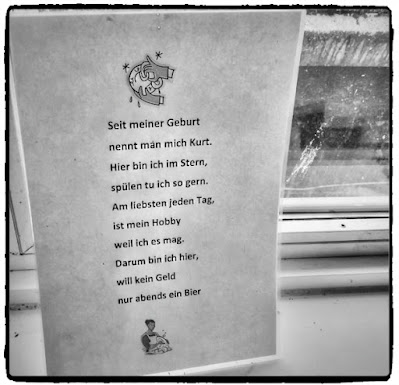 Seit meiner Geburt
nennt man mich Kurt.
Hier bin ich im Stern,
spülen tu ich so gern.
Am liebsten jeden Tag,
ist mein Hobby
weil ich es mag.
Darum bin ich hier,
will kein Geld
nur abends ein Bier